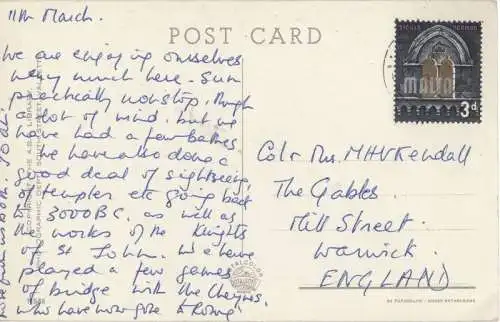 11th March.
We are enjoying ourselves
very much here. Sun
practically nonstop, though
a lot of wind. but we
have had a few bathes.
We have also done a
good deal of sightseeing
of temples etc going back
to 3000 B.C. as well as
the works of the Knights
of St John. We have
played a few games
of bridge with the Cheynes
who have now gone to Rome.
POST CARD
SICULO NORMAN
MALTA
3d
Col & Mrs. M H V Kendall
The Gables
Mill Street.
Warwick.
ENGLAND